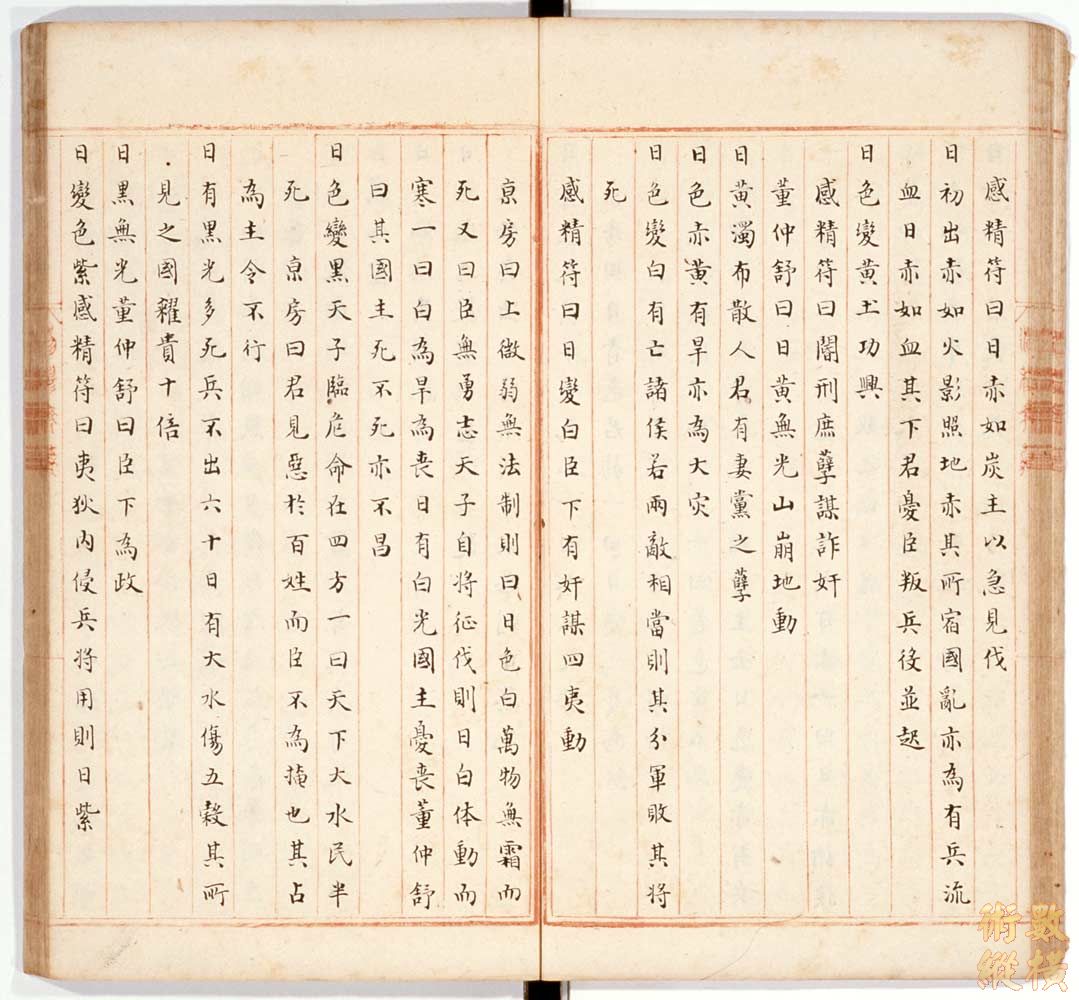 感精符曰日赤如炭主以急見伐
日初出赤如火影照地赤其所宿國亂亦為有兵流
血日赤如血其下君憂臣叛兵後並起
日色變黃土功興
感精符曰闇刑庶孽謀詐奸
董仲舒曰日黃無光山崩地動
日黃濁布散人君有妻黨之孽
日色赤黃有旱亦為大灾
日色變白有亡諸侯若兩敵相當則其分軍敗其將
死
感精符曰日變白臣下有奸謀四夷動
京房曰上微弱無法制則曰日色白萬物無霜而
死又曰臣無勇志天子自將征伐則日白体動而
寒一曰白為旱為喪日有白光國主憂喪董仲舒
曰其國主死不死亦不昌
日色變黑天子臨危命在四方一曰天下大水民半
死 京房曰君見惡於百姓而臣不為掩也其占
為主令不行
日有黑光多死兵不出六十日有大水傷五穀其所
見之國糴貴十倍
日黑無光董仲舒曰臣下為政
日變色紫感精符曰夷狄內侵兵將用則日紫
數術
縱橫